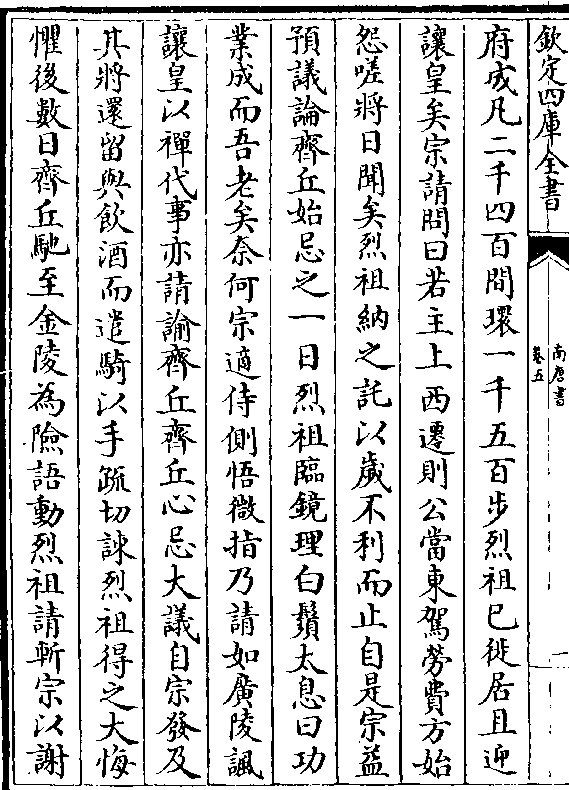 欽定四庫全書
南唐書
卷五
府成凡二千四百間環一千五百步烈祖已徙居且迎
讓皇矣宗請間曰若主上西遷則公當東駕勞費方始
怨嗟將日聞矣烈祖納之託以歲不利而止自是宗益
預議論齊丘始忌之一日烈祖臨鏡理白鬚太息曰功
業成而吾老矣奈何宗適侍側悟微指乃請如廣陵諷
讓皇以禪代事亦請諭齊丘齊丘心忌大議自宗發及
其將還留與飲酒而遣騎以手疏切諫烈祖得之大悔
懼後數日齊丘馳至金陵為險語動烈祖請斬宗以謝